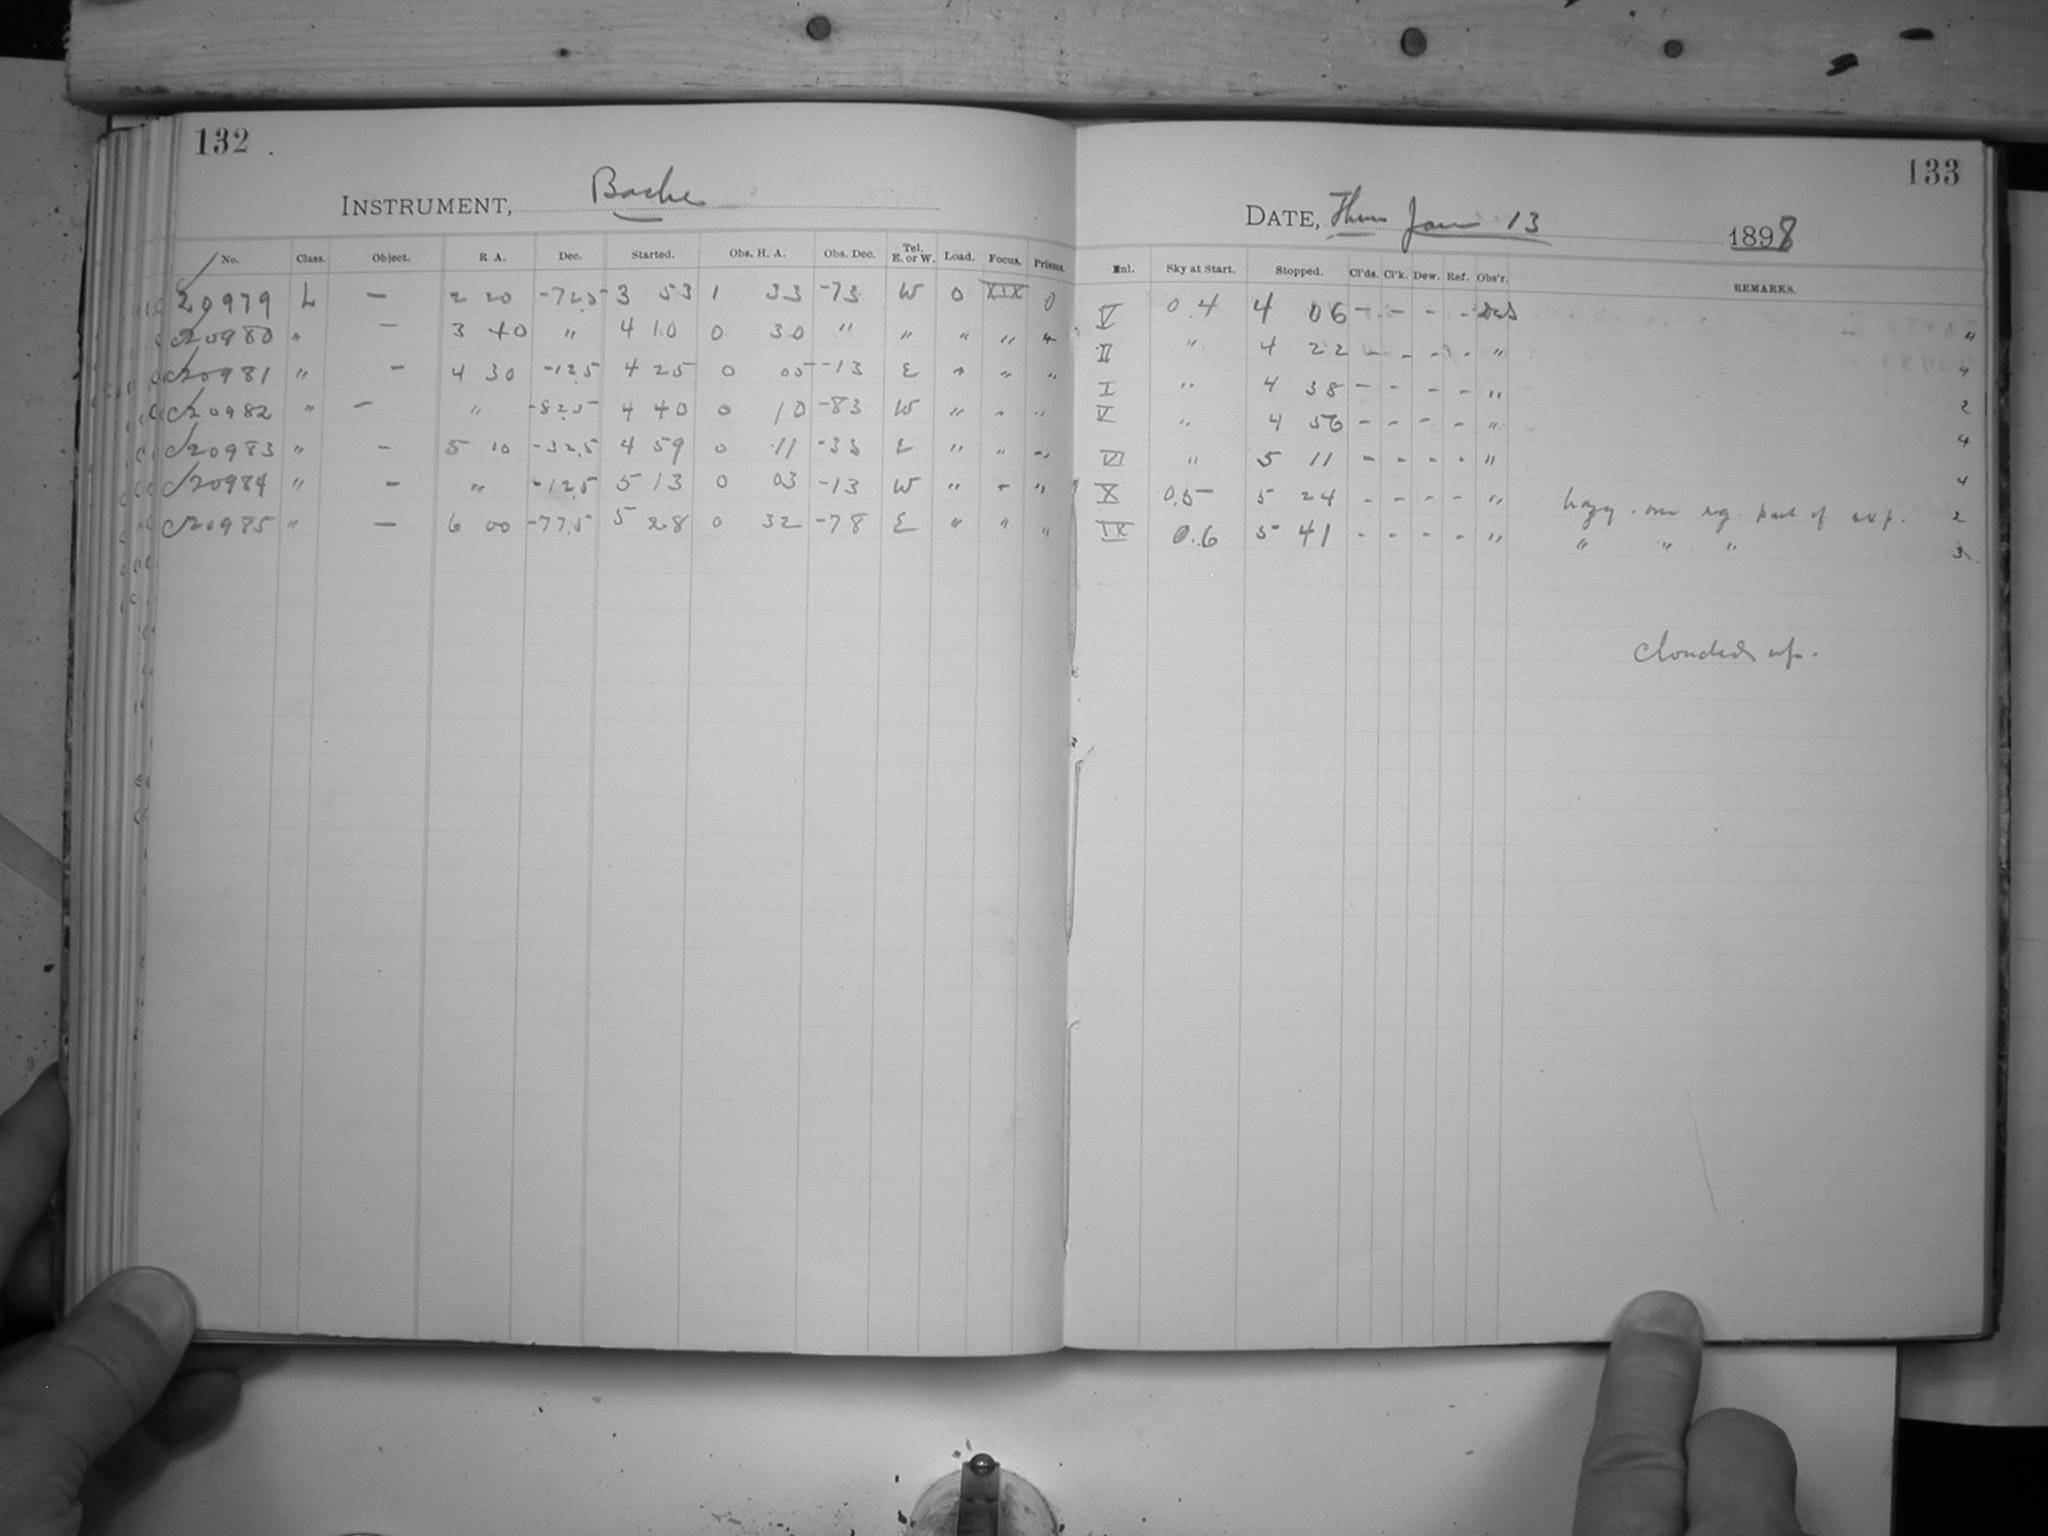 132
INSTRUMENT, Bache
No. Class. Object. R. A. Dec. Started. Obs. H. A. Obs. Dec. Tel. E. or W. Load. Focus. Prisms.
20979 L — 2 20 -72.5 3 53 1 33 -73 W 0 XIX 0
c20980 " — 3 40 " 4 10 0 30 " " " " "
c20981 " — 4 30 -12.5 4 25 0 05 -13 E " " "
c20982 " — " -82.5 4 40 0 10 -83 W " " "
c20983 " — 5 10 -32.5 4 59 0 11 -33 E " " "
c20984 " — " -12.5 5 13 0 03 -13 W " " "
c20985 " — 6 00 -77.5 5 28 0 32 -78 E " " "
133
DATE, Thur Jan 13 1898
Enl. Sky at Start. Stopped. Cl'ds. Cl'k. Dew. Ref. Obs'r. REMARKS.
V 0.4 4 06 - - - - 4
II " 4 22 - - - - " 4
I " 4 38 - - - - " 2
V " 4 56 - - - - " 4
VI " 5 11 - - - - " 4
X 0.5 5 24 - - - - " hazy over reg. part of exp. 2
IX 0.6 5 41 - - - - " " " " 3
clouded up.